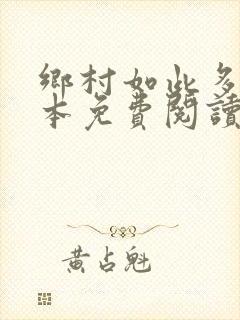 鄉村如此多
本免費閱讀
黃占魁